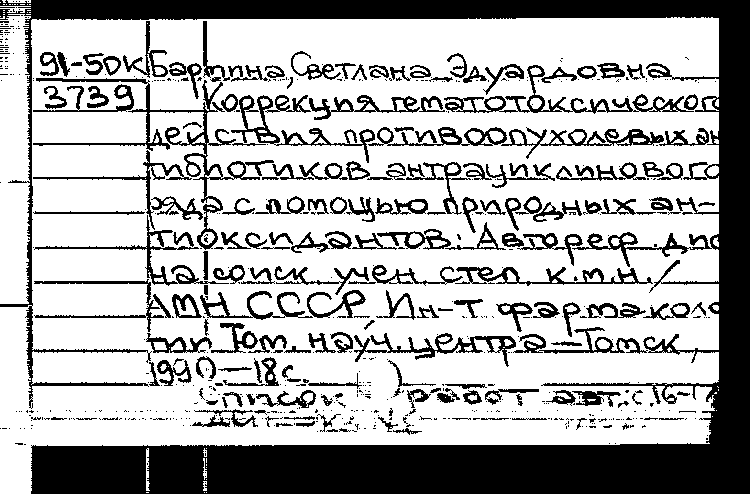 91-5DK Бартина, Светлана Эдуардовна
3739 Коррекция гематотоксического
действия противоопухолевых ан
тибиотиков антрациклинового
ряда с помощью природных ан-
тиоксидантов: Автореф. дис
на соиск. учен. степ. к.м.н./
АМН СССР Ин-т фармаколо
гии Том. науч. центра — Томск,
1990. — 18 с.
Список работ авт.: с. 16-17